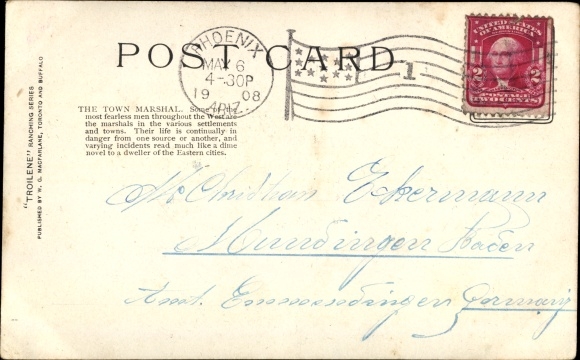 POST CARD.
PHOENIX
MAY 6
4-30P
1908
ARIZ.
1
UNITED STATES
OF AMERICA
2 2
POSTAGE
TWO CENTS
THE TOWN MARSHAL. Some of the
most fearless men throughout the West are
the marshals in the various settlements
and towns. Their life is continually in
danger from one source or another, and
varying incidents read much like a dime
novel to a dweller of the Eastern cities.
"TROILENE" RANCHING SERIES
PUBLISHED BY W. G. MACFARLANE, TORONTO AND BUFFALO
Christian Eckermann
Mundingen Baden
Amt. Emmendingen Germany